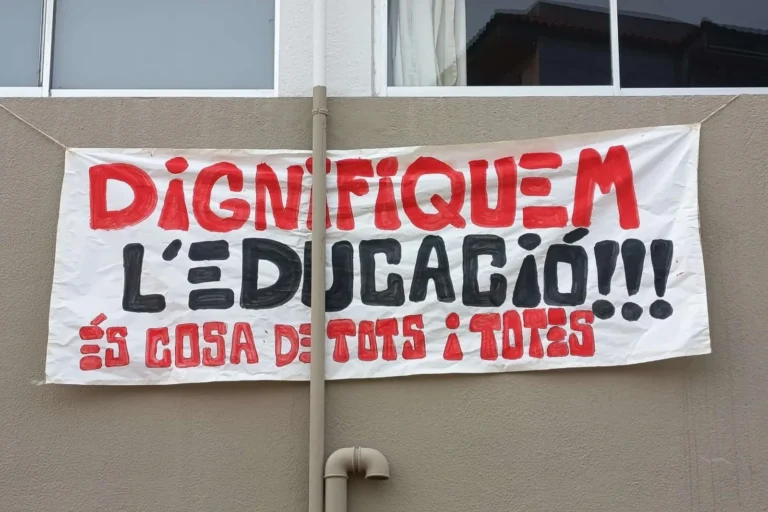 DiGNiFiQUEM
L'EDUCACIÓ!!!
ÉS COSA DE TOTS i TOTES